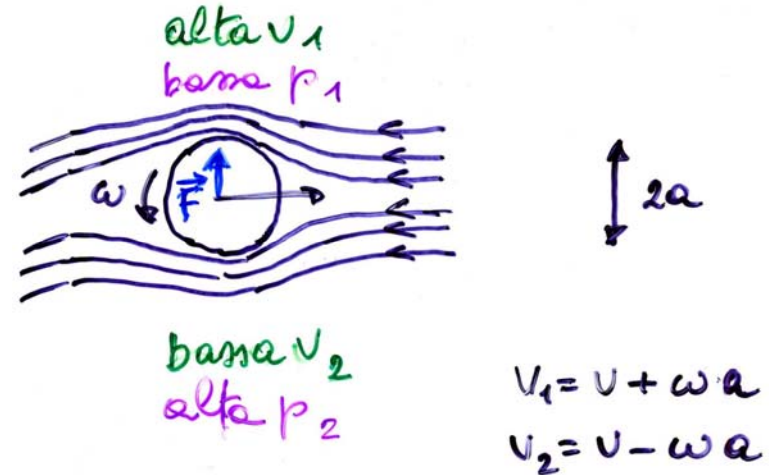 alta v₁
bassa p₁
ω
F⃗
2a
bassa v₂
alta p₂
v₁ = v + ω a
v₂ = v - ω a